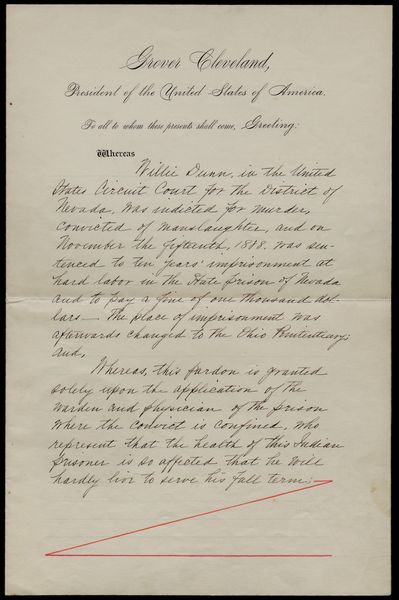 Grover Cleveland,
President of the United States of America.
To all to whom these presents shall come, Greeting:
Whereas
Willie Dunn, in the United
States Circuit Court for the District of
Nevada, was indicted for murder,
convicted of manslaughter, and on
November the fifteenth, 1878. was sen-
tenced to ten years' imprisonment at
hard labor in the State prison of Nevada
and to pay a fine of one thousand dol-
lars — The place of imprisonment was
afterwards changed to the Ohio Penitentiary;
and,
Whereas, this pardon is granted
solely upon the application of the
Warden and physician of the prison
where the convict is confined, who
represent that the health of this Indian
prisoner is so affected that he will
hardly live to serve his full term: